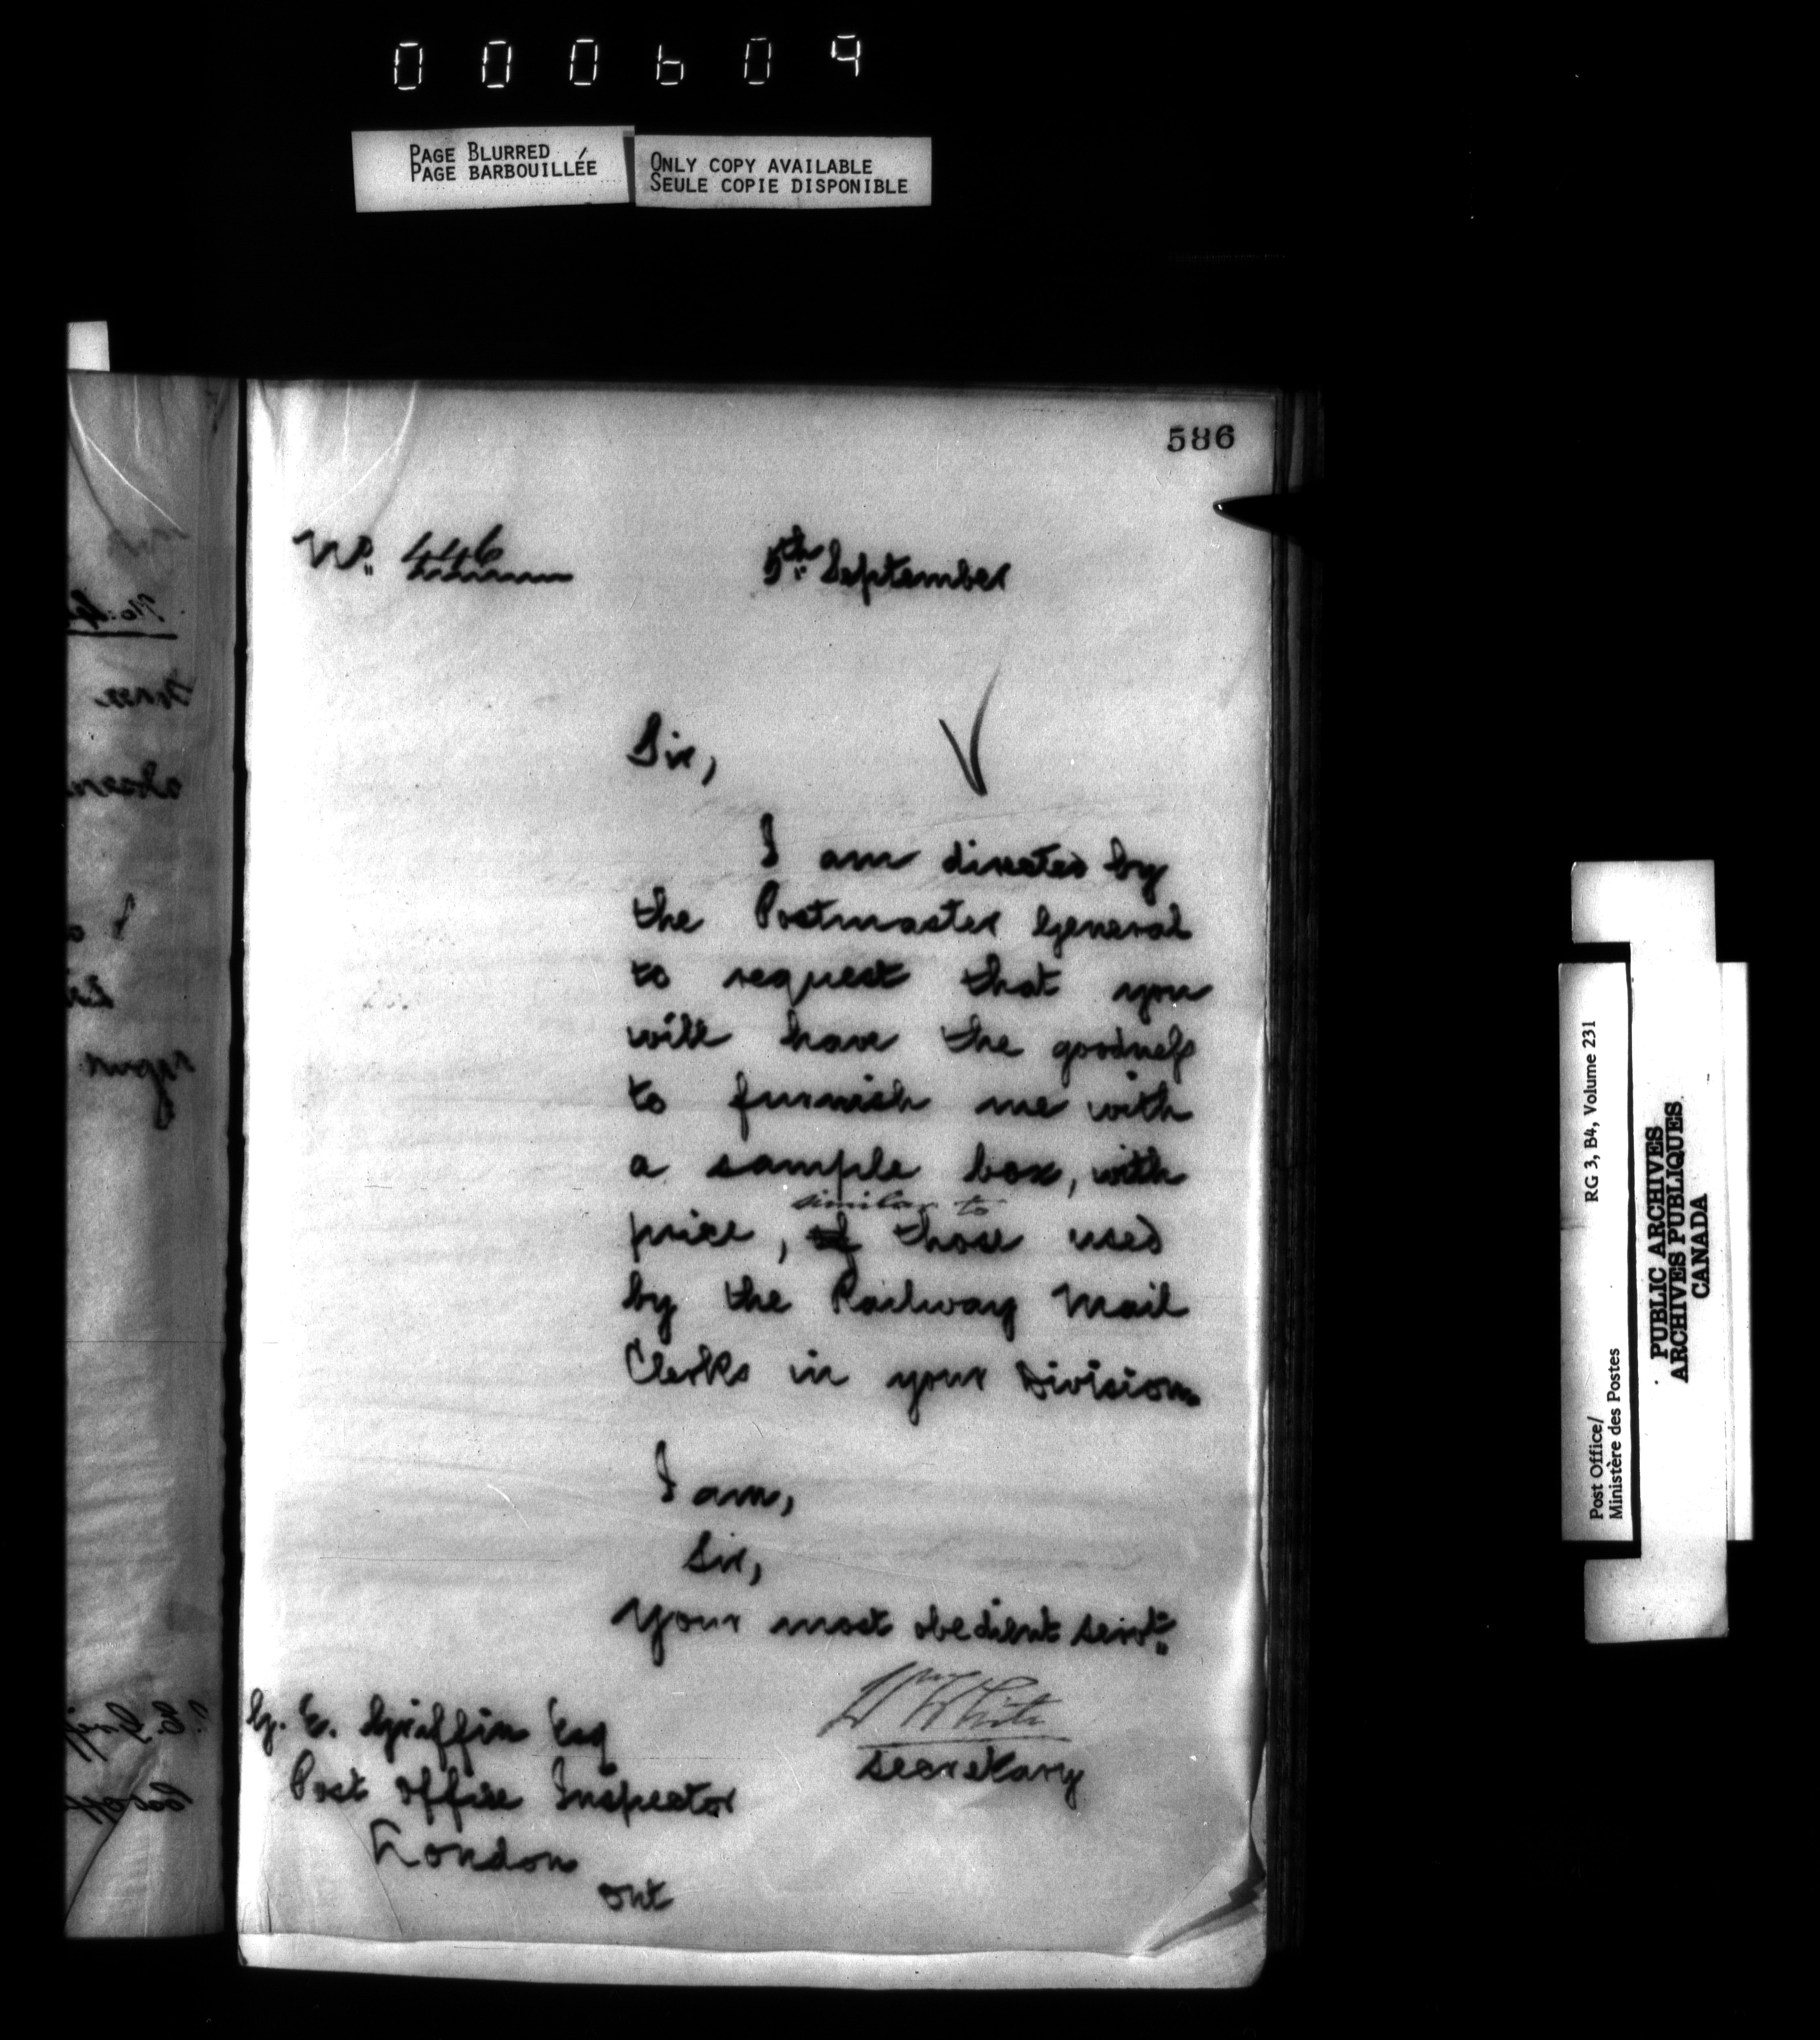 000609
PAGE BLURRED
PAGE BARBOUILLÉE
ONLY COPY AVAILABLE
SEULE COPIE DISPONIBLE
586
No. 446
5th September
Sir,
I am directed by
the Postmaster General
to request that you
will have the goodness
to furnish me with
a sample box, with
similar to
price, of those used
by the Railway Mail
Clerks in your Division.
I am,
Sir,
Your most obedient servt.
Wm White
Secretary
G. E. Griffin Esq
Post Office Inspector
London
Ont
Post Office/
Ministère des Postes
RG 3, B4, Volume 231
PUBLIC ARCHIVES
ARCHIVES PUBLIQUES
CANADA